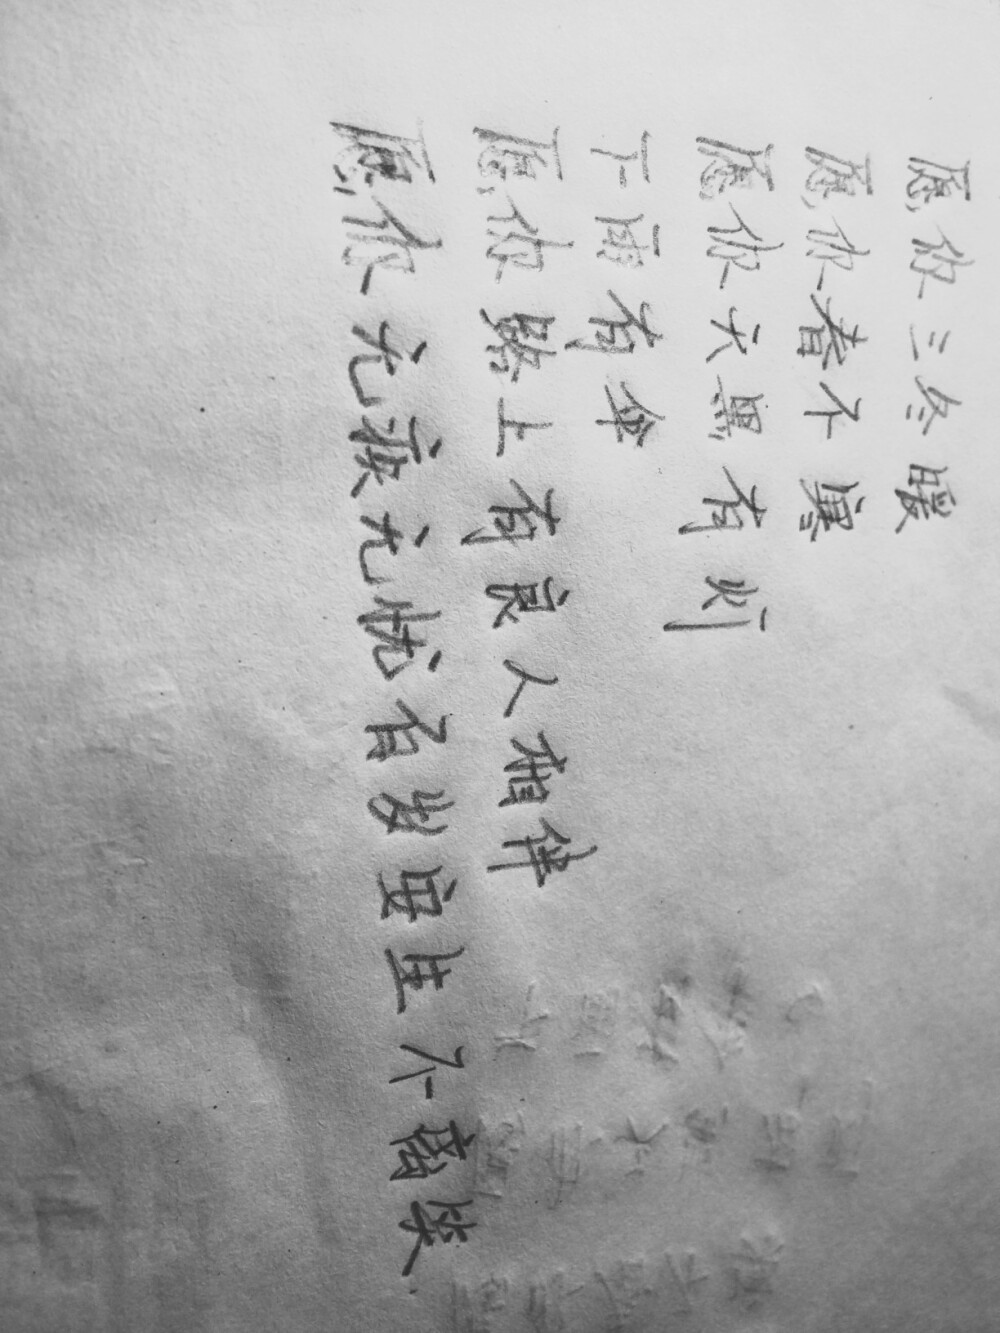 愿你三冬暖
愿你春不寒
愿你天黑有灯
下雨有伞
愿你路上有良人相伴
愿你无疾无忧百岁安生不离笑